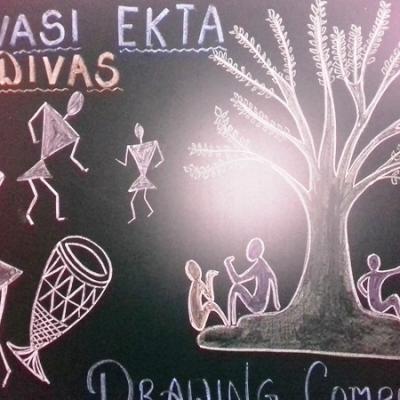 VASI EKTA
DIVAS
DRAWING COMP